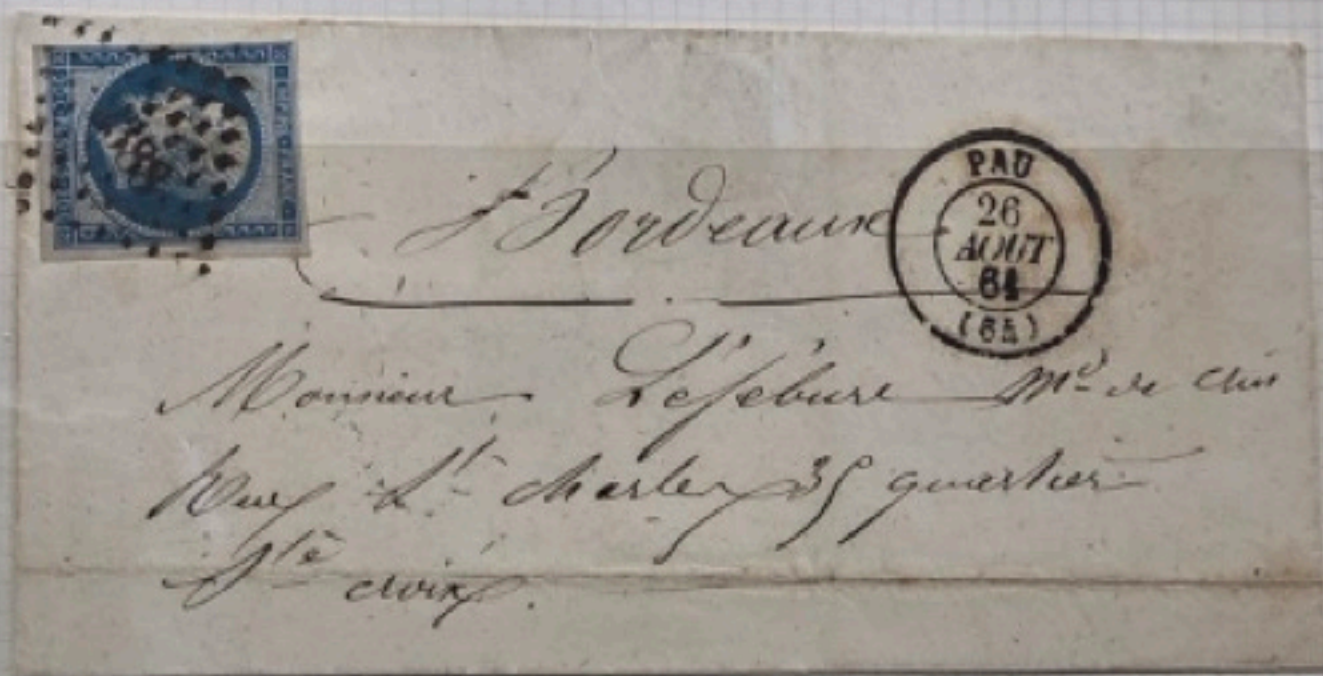 Bordeaux
PAU
26
AOUT
61
(64)
Monsieur Lefebure Md de crin
Rue St Charles 35 quartier
Ste croix.